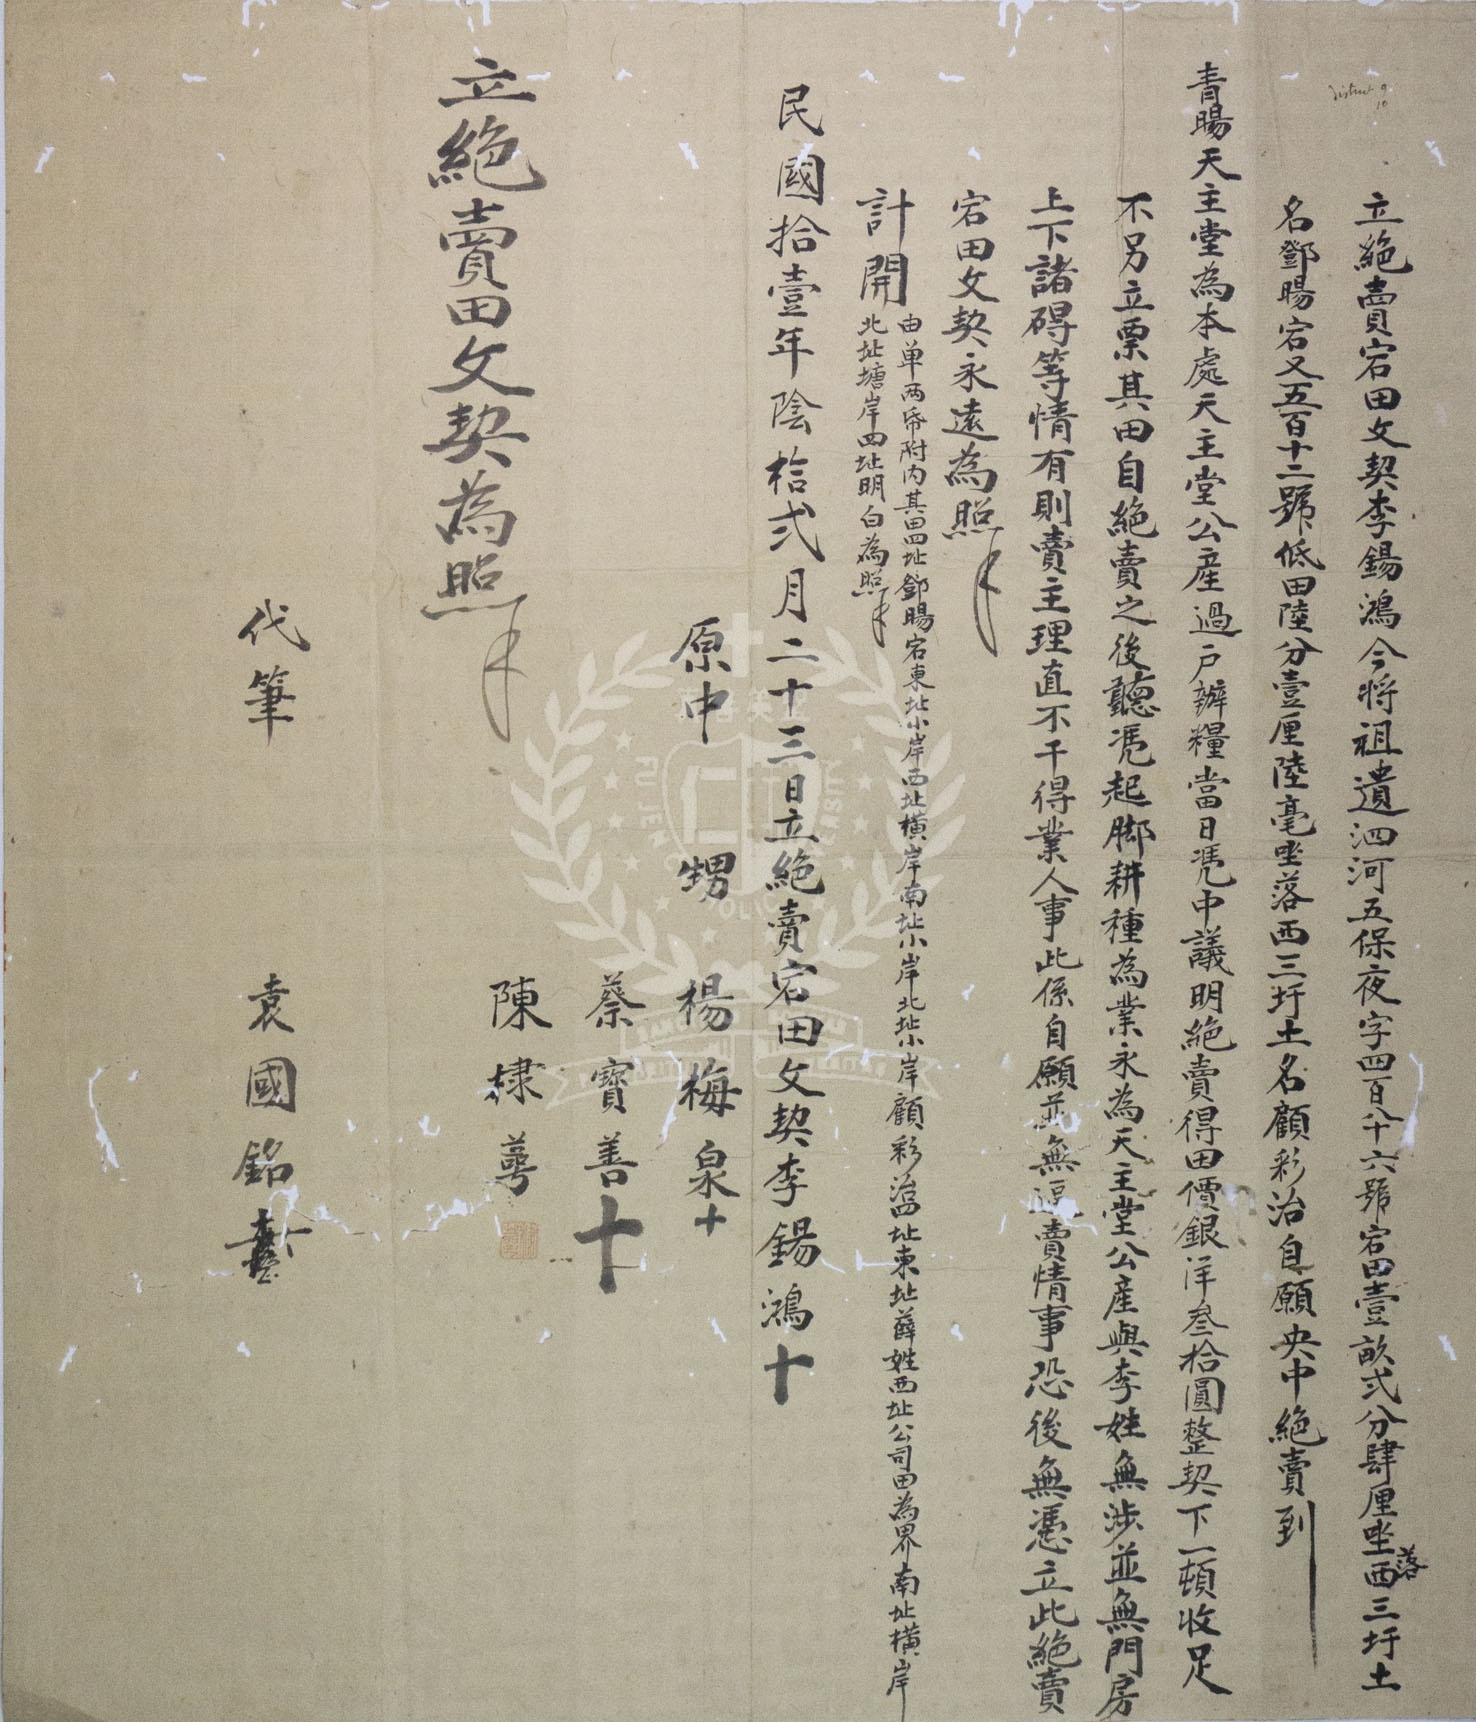 district 9
10
立絕賣宕田文契李錫鴻今將祖遺泗河五保夜字四百八十六號宕田壹畝弍分肆厘坐落西三圩土
名鄧暘宕又五百十二號低田陸分壹厘陸毫坐落西三圩土名顧彩治自願央中絕賣到
青暘天主堂為本處天主堂公產過戶辦糧當日憑中議明絕賣得田價銀洋叁拾圓整契下一頓收足
不另立票其田自絕賣之後聽憑起脚耕種為業永為天主堂公產與李姓無涉並無門房
上下諸碍等情有則賣主理直不干得業人事此係自願並無逼賣情事恐後無憑立此絕賣
宕田文契永遠為照
計開
由单两帋附內其田四址鄧暘宕東址小岸西址橫岸南址小岸北址小岸顧彩治四址東址薛姓西址公司田為界南址橫岸
北址塘岸四址明白為照
民國拾壹年陰拾弍月二十三日立絕賣宕田文契李錫鴻十
原中 甥 楊梅泉十
蔡寶善十
陳棣萼
立絕賣田文契為照
代筆 袁國銘